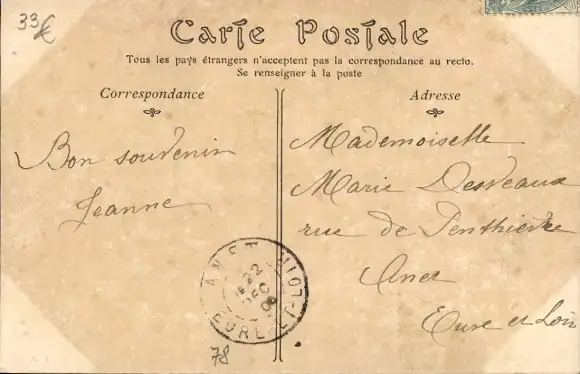 33 €
Carte Postale
Tous les pays étrangers n'acceptent pas la correspondance au recto.
Se renseigner à la poste
Correspondance
Adresse
Bon souvenir
Jeanne
Mademoiselle
Marie Desveaux
rue de Penthièvre
Anet
Eure et Loir
ANET
22
DEC
EURE-ET-LOIR
78